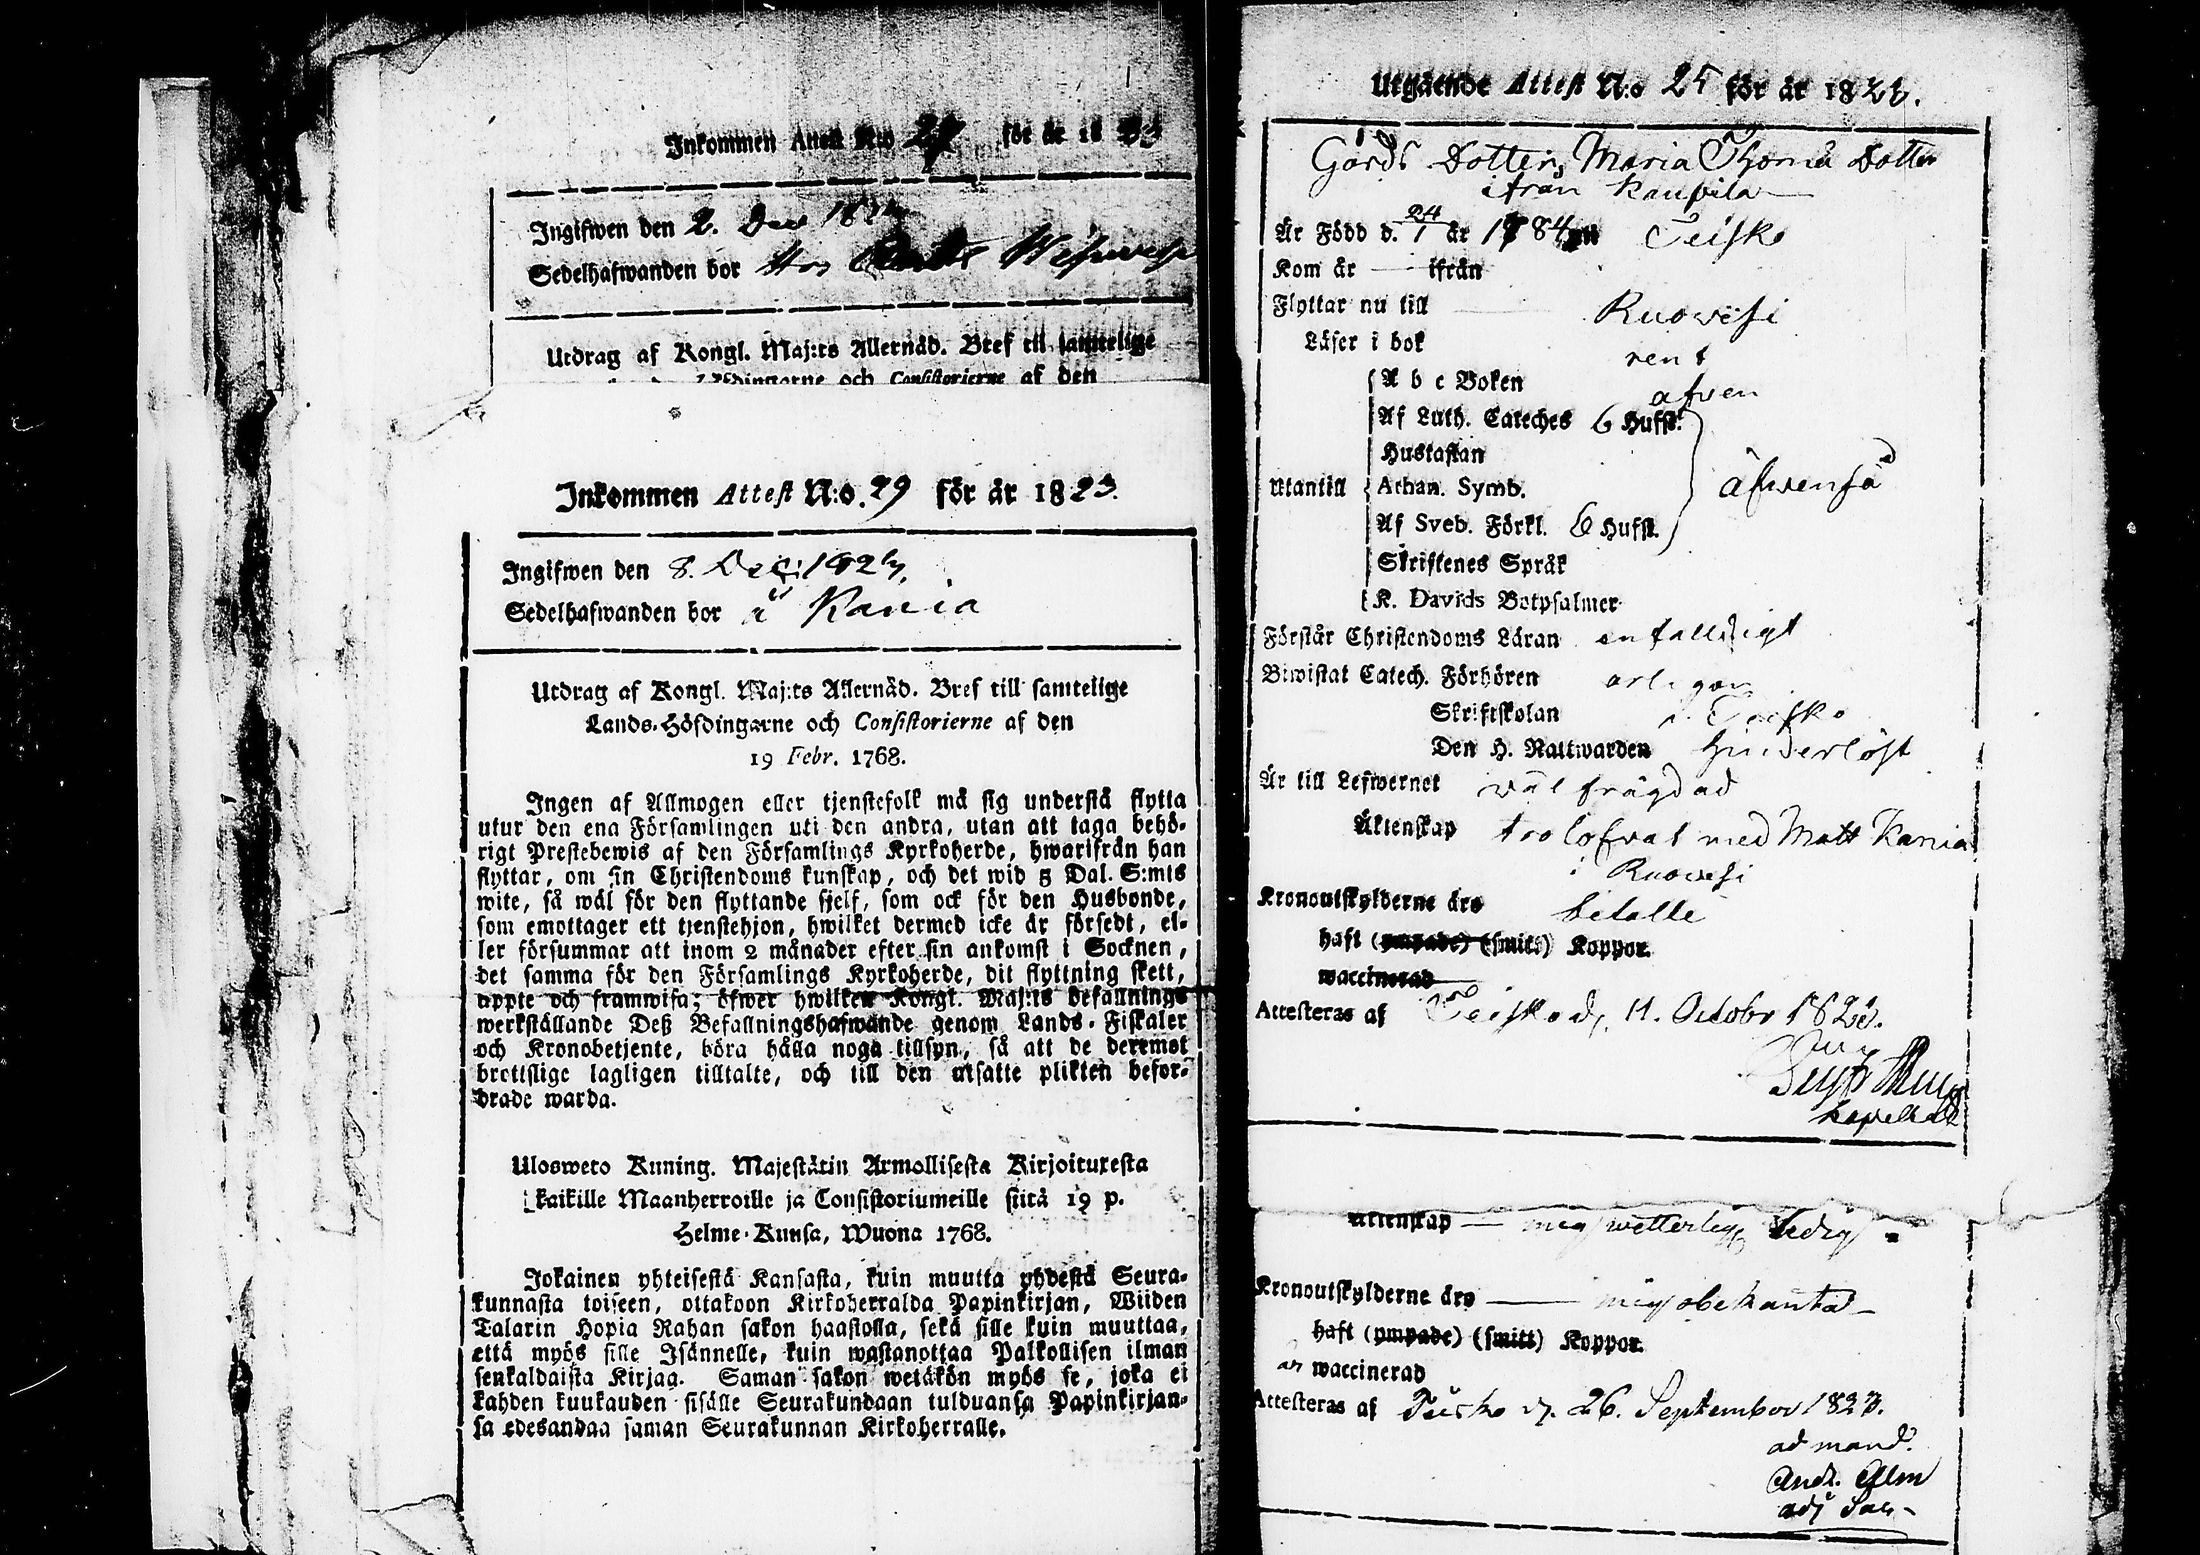 Inkommen Attest N:o för är 18
Ingifwen den 2. Dec
Sedelhafwanden bor Hos
Utdrag af Kongl. Maj:ts Allernåd. Bref til samtelige
Höfdingarne och Consistorierne af den
Inkommen Attest N:o. 29 för är 1823.
Ingifwen den 8. Dec: 1823.
Sedelhafwanden bor å Kania
Utdrag af Kongl. Maj:ts Allernåd. Bref till samtelige
Lands-Höfdingarne och Consistorierne af den
19 Febr. 1768.
Ingen af Allmogen eller tjenstefolk må sig understå flytta
utur den ena Församlingen uti den andra, utan att taga behö-
rigt Prestebewis af den Församlings Kyrkoherde, hwarifrån han
flyttar, om sin Christendoms kunskap, och det wid 5 Dal. S:mts
wite, så wäl för den flyttande sjelf, som ock för den Husbonde,
som emottager ett tjenstehjon, hwilket dermed icke är försedt, el-
ler försummar att inom 2 månader efter sin ankomst i Socknen,
det samma för den Församlings Kyrkoherde, dit flyttning skett,
uppte och framwisa; öfwer hwilken Kongl. Maj:ts befallnings
werkställande Deß Befallningshafwande genom Lands-Fiskaler
och Kronobetjente, böra hålla noga tillsyn, så att de deremot
brottslige lagligen tilltalte, och till den utsatte plikten befor-
drade warda.
Ulosweto Kuning. Majestätin Armollisesta Kirjoituxesta
kaikille Maanherroille ja Consistoriumeille siitä 19 p.
Helme-Kuusa, Wuona 1768.
Jokainen yhteisestä Kansasta, kuin muutta yhdestä Seura-
kunnasta toiseen, ottakoon Kirkoherralda Papinkirjan, Wiiden
Talarin Hopia Rahan sakon haastolla, sekä sille kuin muuttaa,
että myös sille Isännelle, kuin wastanottaa Palkollisen ilman
senkaldaista Kirjaa. Saman sakon wetäkön myös se, joka ei
kahden kuukauden sisälle Seurakundaan tulduansa Papinkirjan-
sa edesandaa saman Seurakunnan Kirkoherralle.
Utgäende Attest N:o 25 för är 1823.
Gårds Dotter, Maria Thomæ Dotter
ifrån Kaupila
Är Född d. 24/1 är 1784 uti Teisko
Kom är — ifrån
Flyttar nu till — Ruovesi
Läser i bok rent
Utantill
A b c Boken äfven
Af Luth. Cateches 6 Hufst.
Hustaflan
Athan. Symb. äfwenså
Af Sveb. Förkl. 6 Hufst.
Skriftenes Språk
K. Davids Botpsalmer
Förstår Christendoms Läran enfalldigt
Biwistat Catech. Förhören årligen
Skriftskolan i Teisko
Den H. Nattwarden hinderlöst
Är till Lefwernet väl frägdad
Äktenskap trolofvat med Matt Kania
i Ruovesi
Kronoutskylderne äro betalte
haft (ympade) (smitt) Koppor.
waccinerad
Attesteras af Teisko d. 11. Octobr 1823.
Kapellan
Äktenskap — mig wetterligt ledig
Kronoutskylderne äro — mig obekanta —
haft (ympade) (smitt) Koppor.
är waccinerad
Attesteras af Teisko d. 26. September 1823.
ad mand.
And. Alm
adj Sac